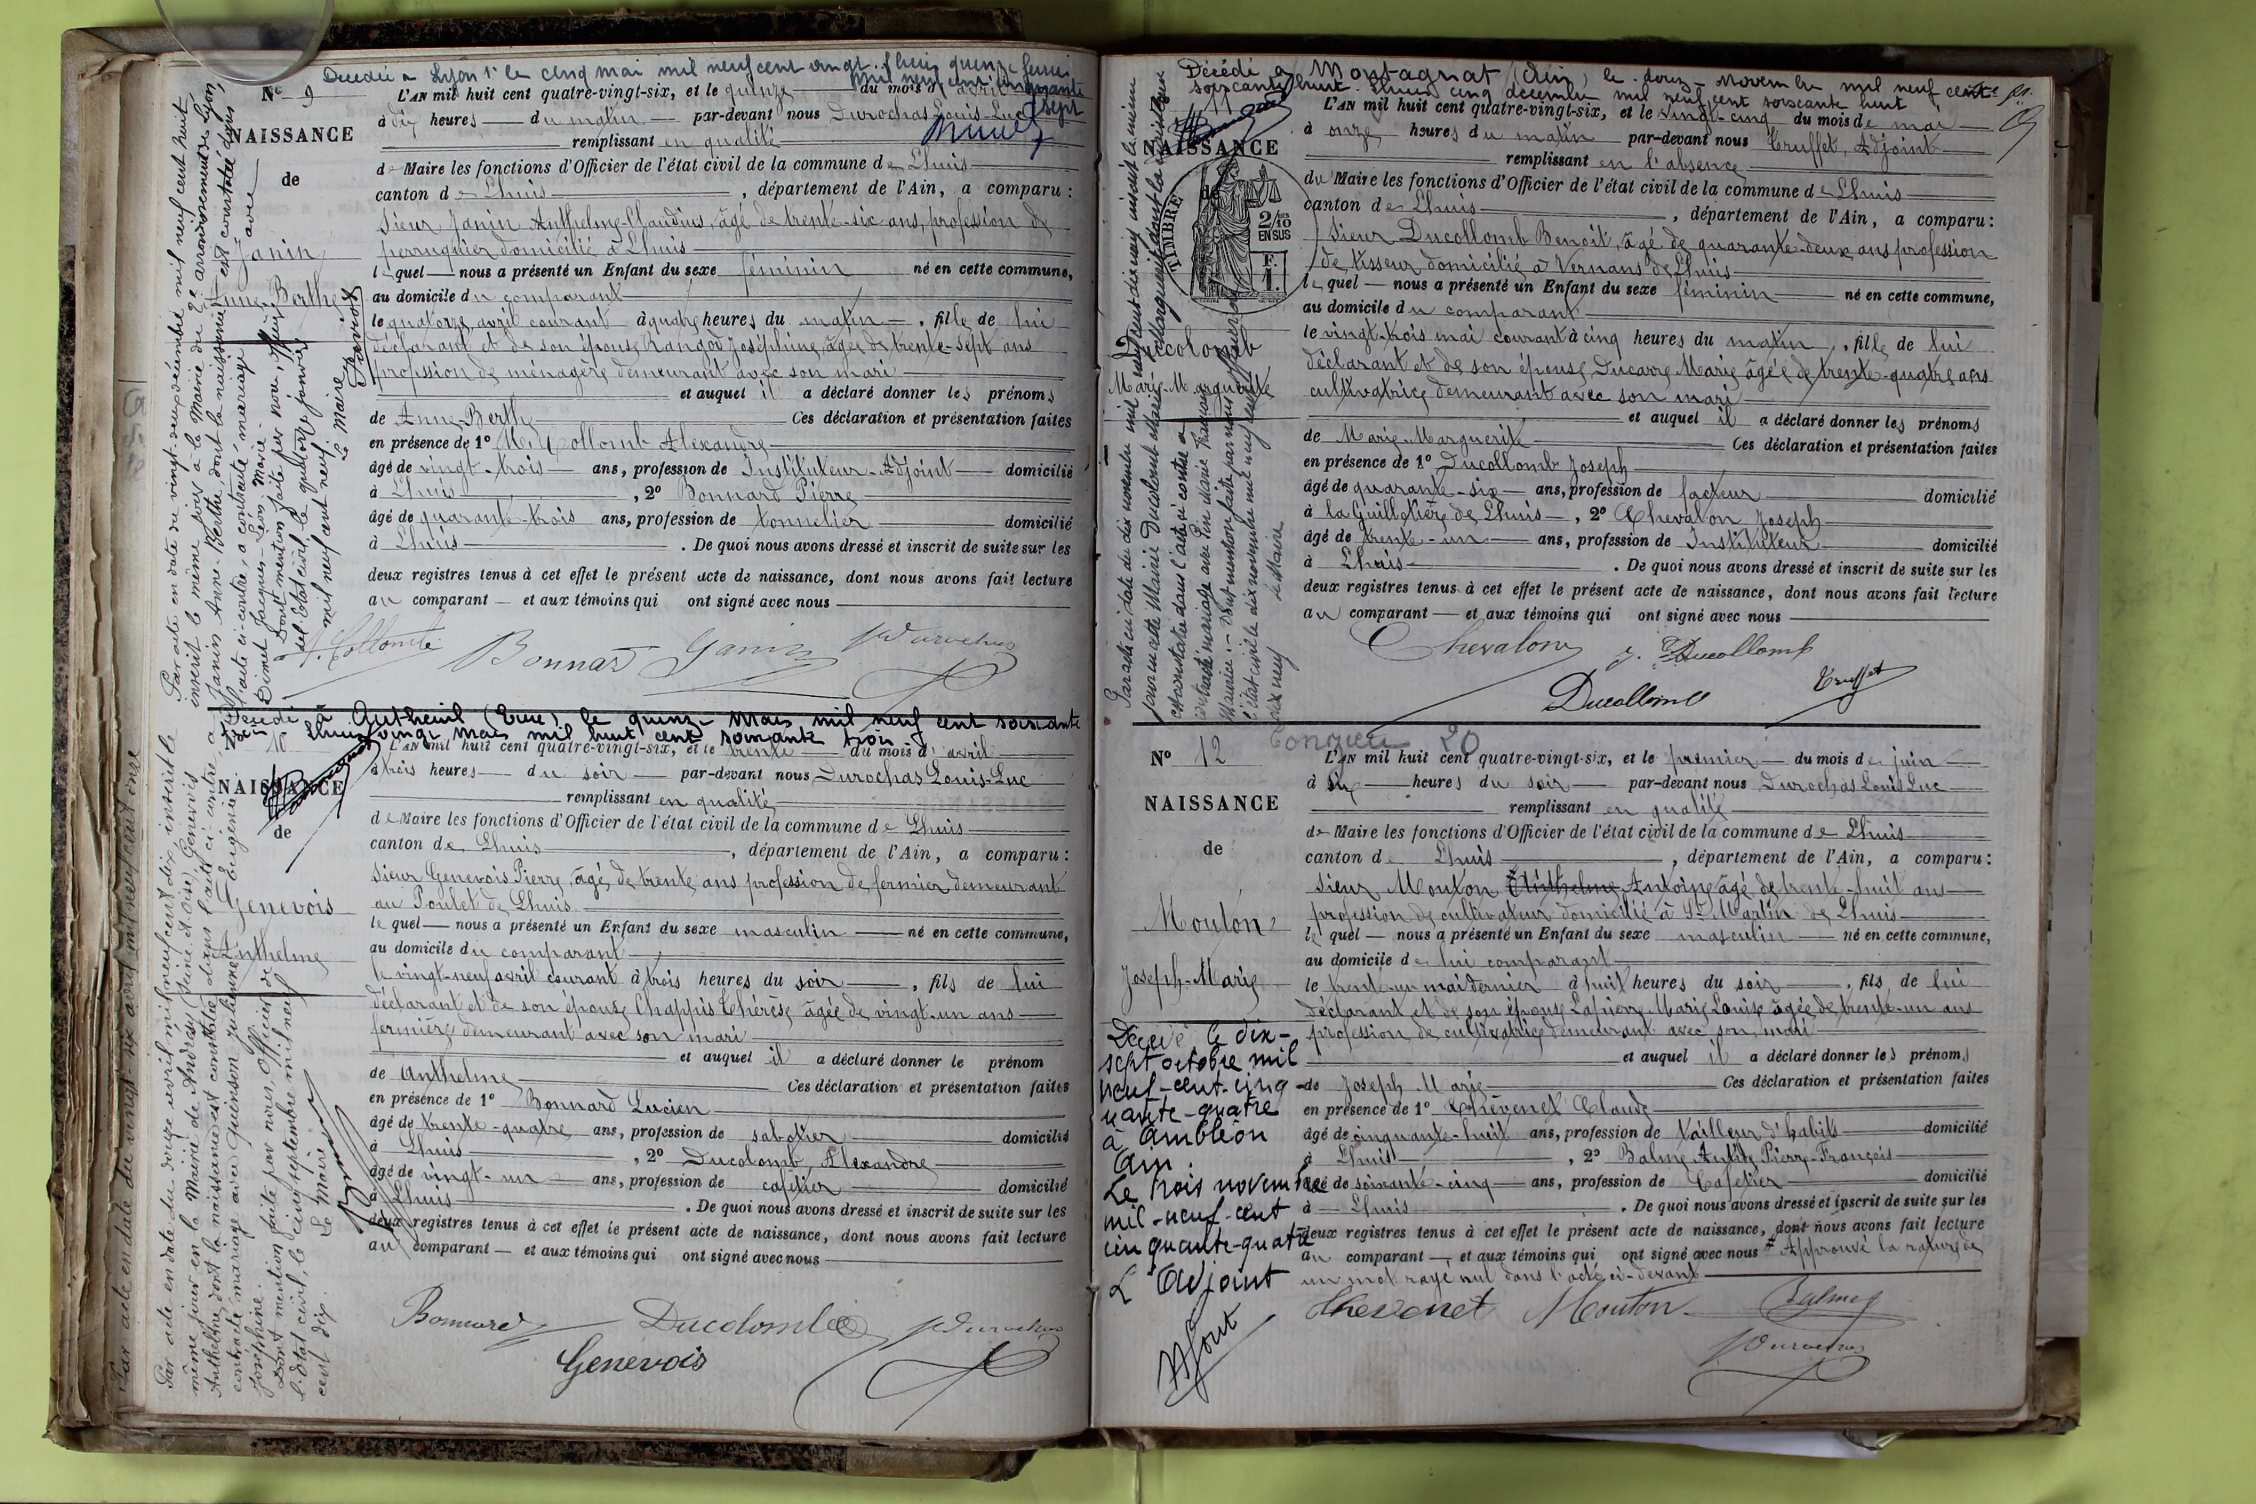 Décédée à Lyon 1er le cinq mai mil neuf cent
mil neuf cent cinquante
sept
N° 9
NAISSANCE
de
Janin
Anne-Berthe
L'AN mil huit cent quatre-vingt-six, et le quinze du mois d'avril
à dix heures du matin par-devant nous Durochas Louis-Luc
remplissant en qualité
de Maire les fonctions d'Officier de l'état civil de la commune de Lhuis
canton de Lhuis, département de l'Ain, a comparu:
Sieur Janin Anthelme-Claudius, âgé de trente-six ans, profession de
perruquier domicilié à Lhuis
lequel nous a présenté un Enfant du sexe féminin né en cette commune,
au domicile du comparant
le quatorze avril courant à quatre heures du matin, fille de lui
déclarant et de son épouse Rangod Joséphine, âgée de trente-sept ans
profession de ménagère demeurant avec son mari
et auquel il a déclaré donner les prénoms
de Anne-Berthe Ces déclaration et présentation faites
en présence de 1° M. Collomb Alexandre
âgé de vingt-trois ans, profession de Instituteur-Adjoint domicilié
à Lhuis, 2° Bonnard Pierre
âgé de quarante-trois ans, profession de tonnelier domicilié
à Lhuis. De quoi nous avons dressé et inscrit de suite sur les
deux registres tenus à cet effet le présent acte de naissance, dont nous avons fait lecture
au comparant et aux témoins qui ont signé avec nous
A. Collomb Bonnard Janin Durochas
Par acte en date du vingt-six décembre mil neuf cent huit
inscrit le même jour à la Mairie du 2e arrondissement de Lyon
Janin Anne-Berthe dont la naissance est constatée dans
l'acte ci-contre, a contracté mariage avec
Dimet Jacques-Léon Marie.
Dont mention faite par nous, Officier
de l'Etat civil le quatorze janvier
mil neuf cent neuf
Le Maire
Décédé à Autheuil (Eure) le quinze mars mil neuf cent soixante
trois Lhuis vingt mars mil huit cent soixante trois
N° 10
NAISSANCE
de
Genevois
Anthelme
L'AN mil huit cent quatre-vingt-six, et le trente du mois d'avril
à trois heures du soir par-devant nous Durochas Louis-Luc
remplissant en qualité
de Maire les fonctions d'Officier de l'état civil de la commune de Lhuis
canton de Lhuis, département de l'Ain, a comparu:
Sieur Genevois Pierre, âgé de trente ans profession de fermier demeurant
au Poulet de Lhuis
lequel nous a présenté un Enfant du sexe masculin né en cette commune,
au domicile du comparant
le vingt-neuf avril courant à trois heures du soir, fils de lui
déclarant et de son épouse Chappuis Thérèse âgée de vingt-un ans
fermière demeurant avec son mari
et auquel il a déclaré donner le prénom
de Anthelme Ces déclaration et présentation faites
en présence de 1° Bonnard Lucien
âgé de trente-quatre ans, profession de sabotier domicilié
à Lhuis, 2° Ducolomb, Alexandre
âgé de vingt-un ans, profession de cafetier domicilié
à Lhuis. De quoi nous avons dressé et inscrit de suite sur les
deux registres tenus à cet effet le présent acte de naissance, dont nous avons fait lecture
au comparant et aux témoins qui ont signé avec nous
Bonnard Ducolomb Durochas
Genevois
Par acte en date du douze avril mil neuf cent dix, inscrit le
même jour en la Mairie de Andrésy (Seine et Oise), Genevois
Anthelme dont la naissance est constatée dans l'acte ci-contre a
contracté mariage avec Quienson Julienne Eugénie
Joséphine.
Dont mention faite par nous, Officier de
l'Etat civil, le cinq septembre mil neuf
cent dix.
Le Maire
Par acte en date du vingt-six avril mil neuf cent onze
Décédée à Montagnat (Ain) le douze Novembre mil neuf cent
soixante huit. Lhuis cinq décembre mil neuf cent soixante huit
11
NAISSANCE
de
TIMBRE
2/10
EN SUS
F.
1.
Ducolomb
Marie-Marguerite
L'AN mil huit cent quatre-vingt-six, et le vingt-cinq du mois de mai
à onze heures du matin par-devant nous Truffet, Adjoint
remplissant en l'absence
du Maire les fonctions d'Officier de l'état civil de la commune de Lhuis
canton de Lhuis, département de l'Ain, a comparu:
Sieur Ducollomb Benoît, âgé de quarante-deux ans profession
de tisseur domicilié à Vernans de Lhuis
lequel nous a présenté un Enfant du sexe féminin né en cette commune,
au domicile du comparant
le vingt-trois mai courant à cinq heures du matin, fille de lui
déclarant et de son épouse Ducarre Marie âgée de trente-quatre ans
cultivatrice demeurant avec son mari
et auquel il a déclaré donner les prénoms
de Marie-Marguerite Ces déclaration et présentation faites
en présence de 1° Ducollomb Joseph
âgé de quarante-six ans, profession de facteur domicilié
à la Guillotière de Lhuis, 2° Chevalon Joseph
âgé de trente-un ans, profession de Instituteur domicilié
à Lhuis. De quoi nous avons dressé et inscrit de suite sur les
deux registres tenus à cet effet le présent acte de naissance, dont nous avons fait lecture
au comparant et aux témoins qui ont signé avec nous
Chevalon J. Ducollomb
Ducollomb Truffet
Par acte en date du dix novembre mil neuf cent dix neuf inscrit le même
jour en cette Mairie Ducolomb Marie-Marguerite dont la naissance
est constatée dans l'acte ci-contre a
contracté mariage avec Pin Marie François
Maurice. Dont mention faite par nous Officier de
l'état civil le dix novembre mil neuf cent
dix neuf
le Maire
N° 12
20
NAISSANCE
de
Mouton
Joseph-Marie
L'AN mil huit cent quatre-vingt-six, et le premier du mois de juin
à six heures du soir par-devant nous Durochas Louis Luc
remplissant en qualité
de Maire les fonctions d'Officier de l'état civil de la commune de Lhuis
canton de Lhuis, département de l'Ain, a comparu:
Sieur Mouton Anthelme Antoine âgé de trente-huit ans
profession de cultivateur domicilié à St Martin de Lhuis
lequel nous a présenté un Enfant du sexe masculin né en cette commune,
au domicile de lui comparant
le trente-un mai dernier à huit heures du soir, fils de lui
déclarant et de son épouse Lapierre Marie Louise âgée de trente-un ans
profession de cultivatrice demeurant avec son mari
et auquel il a déclaré donner les prénoms
de Joseph Marie Ces déclaration et présentation faites
en présence de 1° Thévenet Claude
âgé de cinquante-huit ans, profession de tailleur d'habits domicilié
à Lhuis, 2° Balme Pierre-François
âgé de soixante-cinq ans, profession de Cafetier domicilié
à Lhuis. De quoi nous avons dressé et inscrit de suite sur les
deux registres tenus à cet effet le présent acte de naissance, dont nous avons fait lecture
au comparant et aux témoins qui ont signé avec nous Approuvé la rature de
un mot rayé nul dans l'acte ci-devant
Thevenet Mouton Balme
Durochas
Décédé le dix-
sept octobre mil
neuf-cent-cinq
uante-quatre
à Ambléon
Ain.
Le trois novembre
mil-neuf-cent
cinquante-quatre
L'Adjoint